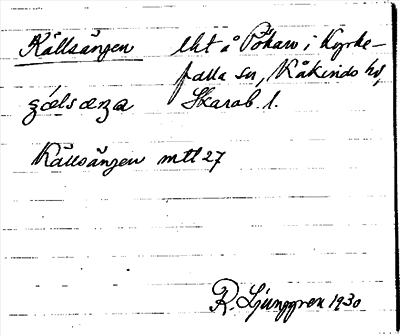 Källsängen lht å Pökaro i Kyrke-
falla sn, Kåkinds hd,
Skarab. l.
Källsängen mtl 27
R. Ljunggren 1930